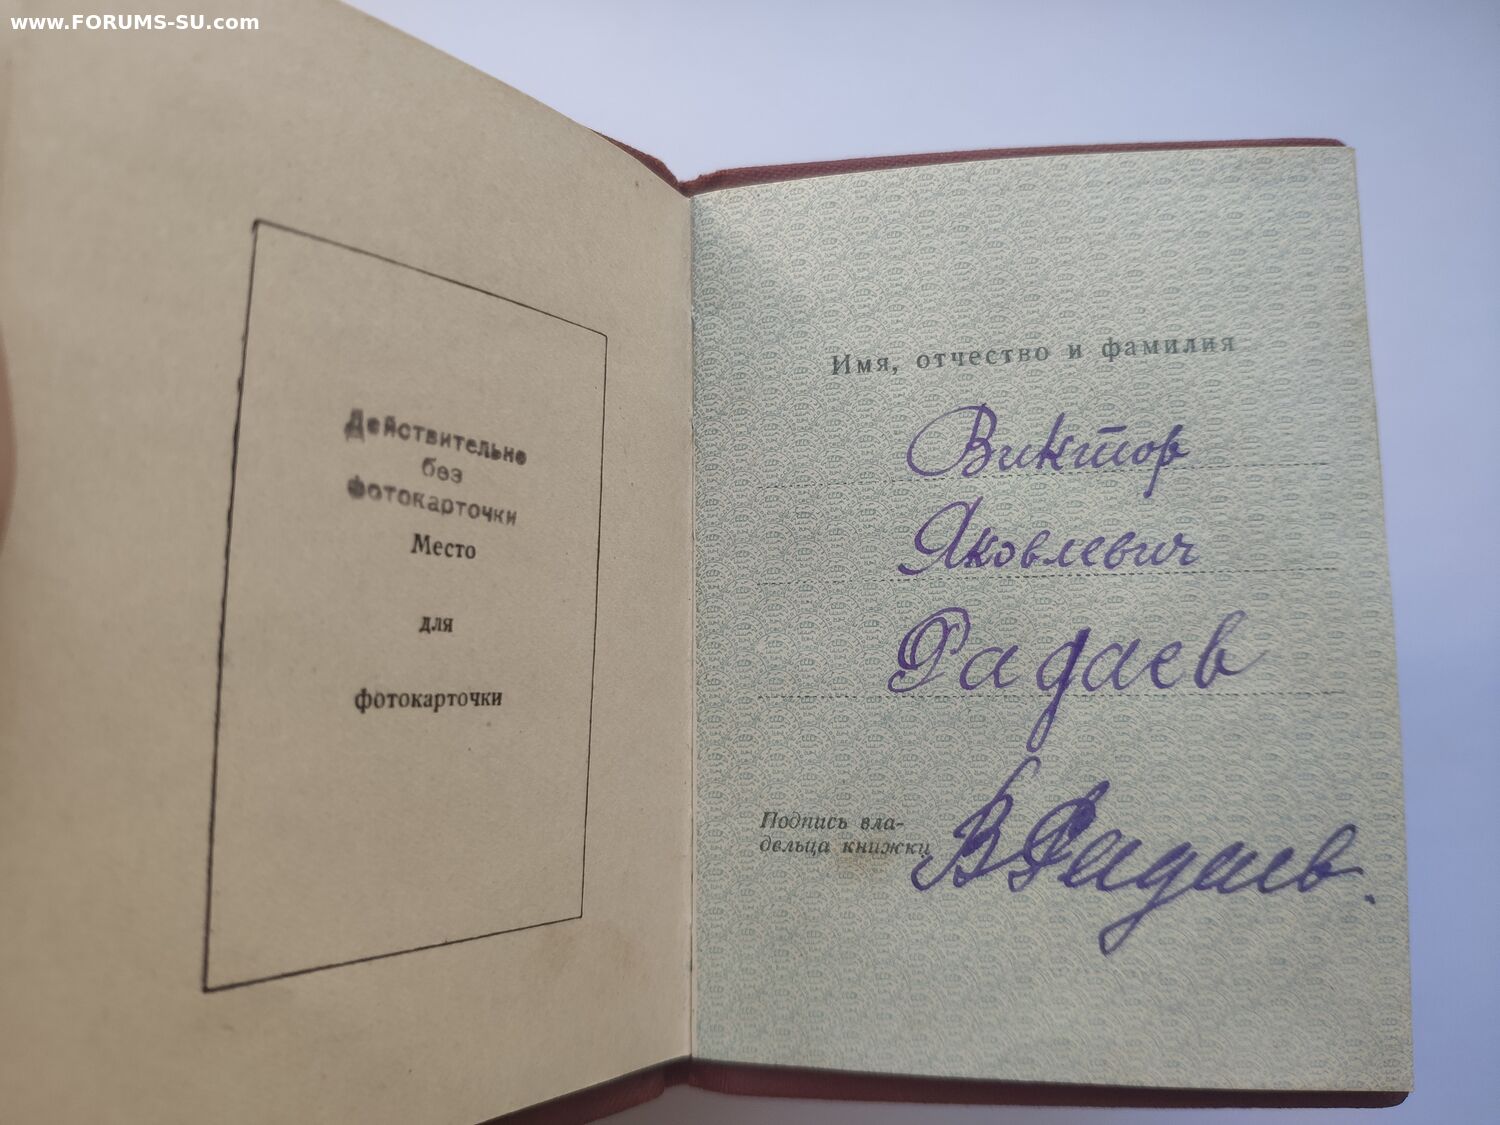 www.FORUMS-SU.com
Действительно
без
фотокарточки
Место
для
фотокарточки
Имя, отчество и фамилия
Виктор
Яковлевич
Радаев
Подпись вла-
дельца книжки
В Радаев.